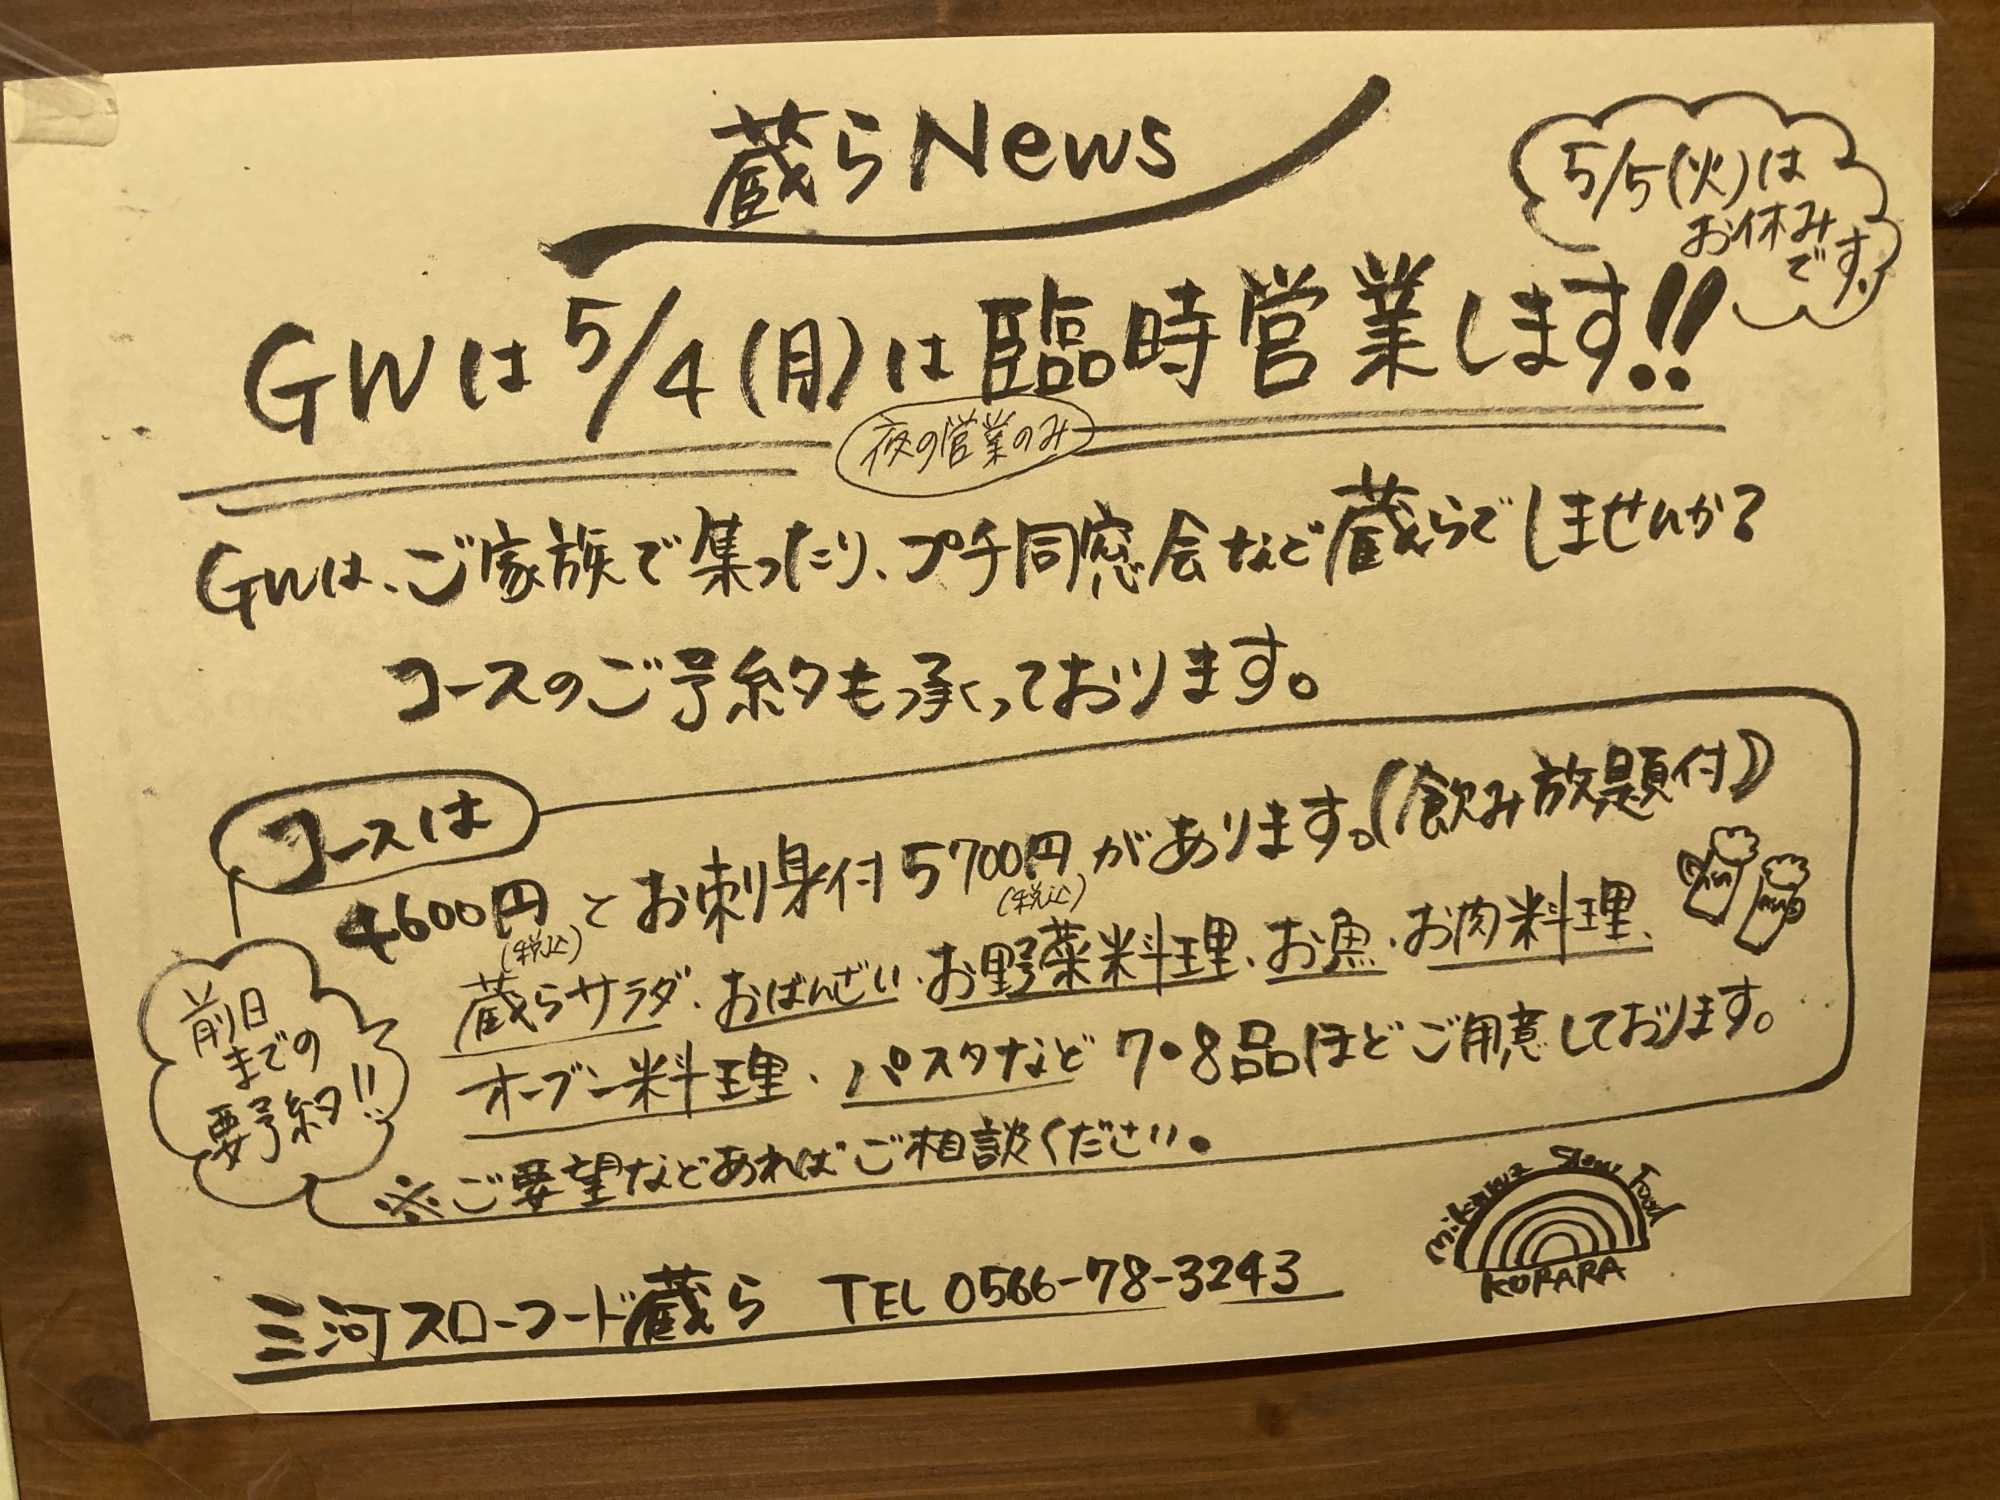 蔵らNews
5/5(火)は
お休み
です
GWは5/4(月)は臨時営業します!!
夜の営業のみ
GWは、ご家族で集ったり、プチ同窓会など蔵らでしませんか?
コースのご予約も承っております。
コースは
4600円とお刺身付5700円があります。(飲み放題付)
(税込) (税込)
蔵らサラダ・おばんざい・お野菜料理、お魚・お肉料理、
オーブン料理・パスタなど7・8品ほどご用意しております。
※ご要望などあればご相談ください。
前日
までの
要予約!!
三河スローフード蔵ら TEL 0566-78-3243
Mikawa Slow Food
KURARA